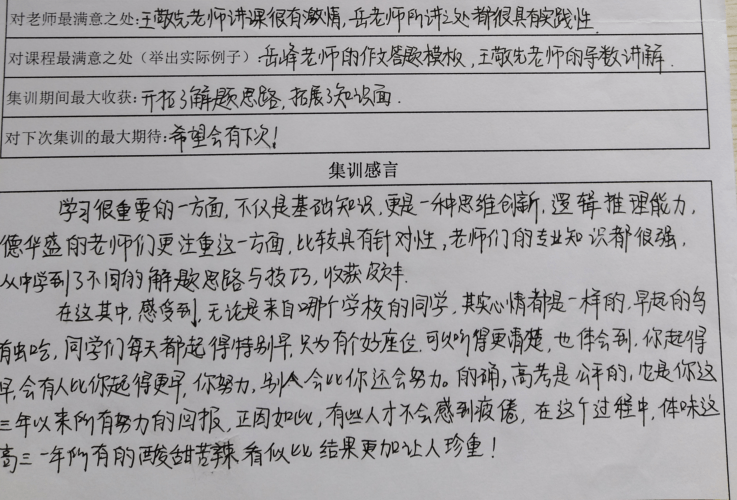 对老师最满意之处:王敬先老师讲课很有激情,岳老师所讲之处都很具有实践性.
对课程最满意之处(举出实际例子):岳峰老师的作文答题模板,王敬先老师的导数讲解.
集训期间最大收获:开拓了解题思路,拓展了知识面.
对下次集训的最大期待:希望会有下次!
集训感言
学习很重要的一方面,不仅是基础知识,更是一种思维创新,逻辑推理能力,
德华盛的老师们更注重这一方面,比较具有针对性,老师们的专业知识都很强,
从中学到了不同的解题思路与技巧,收获颇丰.
在这其中,感受到,无论是来自哪个学校的同学,其实心情都是一样的,早起的鸟
有虫吃,同学们每天都起得特别早,只为有个好座位,可以听得更清楚,也体会到,你起得
早,会有人比你起得更早,你努力,别人会比你还会努力。的确,高考是公平的,也是你这
三年以来所有努力的回报,正因如此,有些人才不会感到疲倦,在这个过程中,体味这
高三一年所有的酸甜苦辣,看似比结果更加让人珍重!